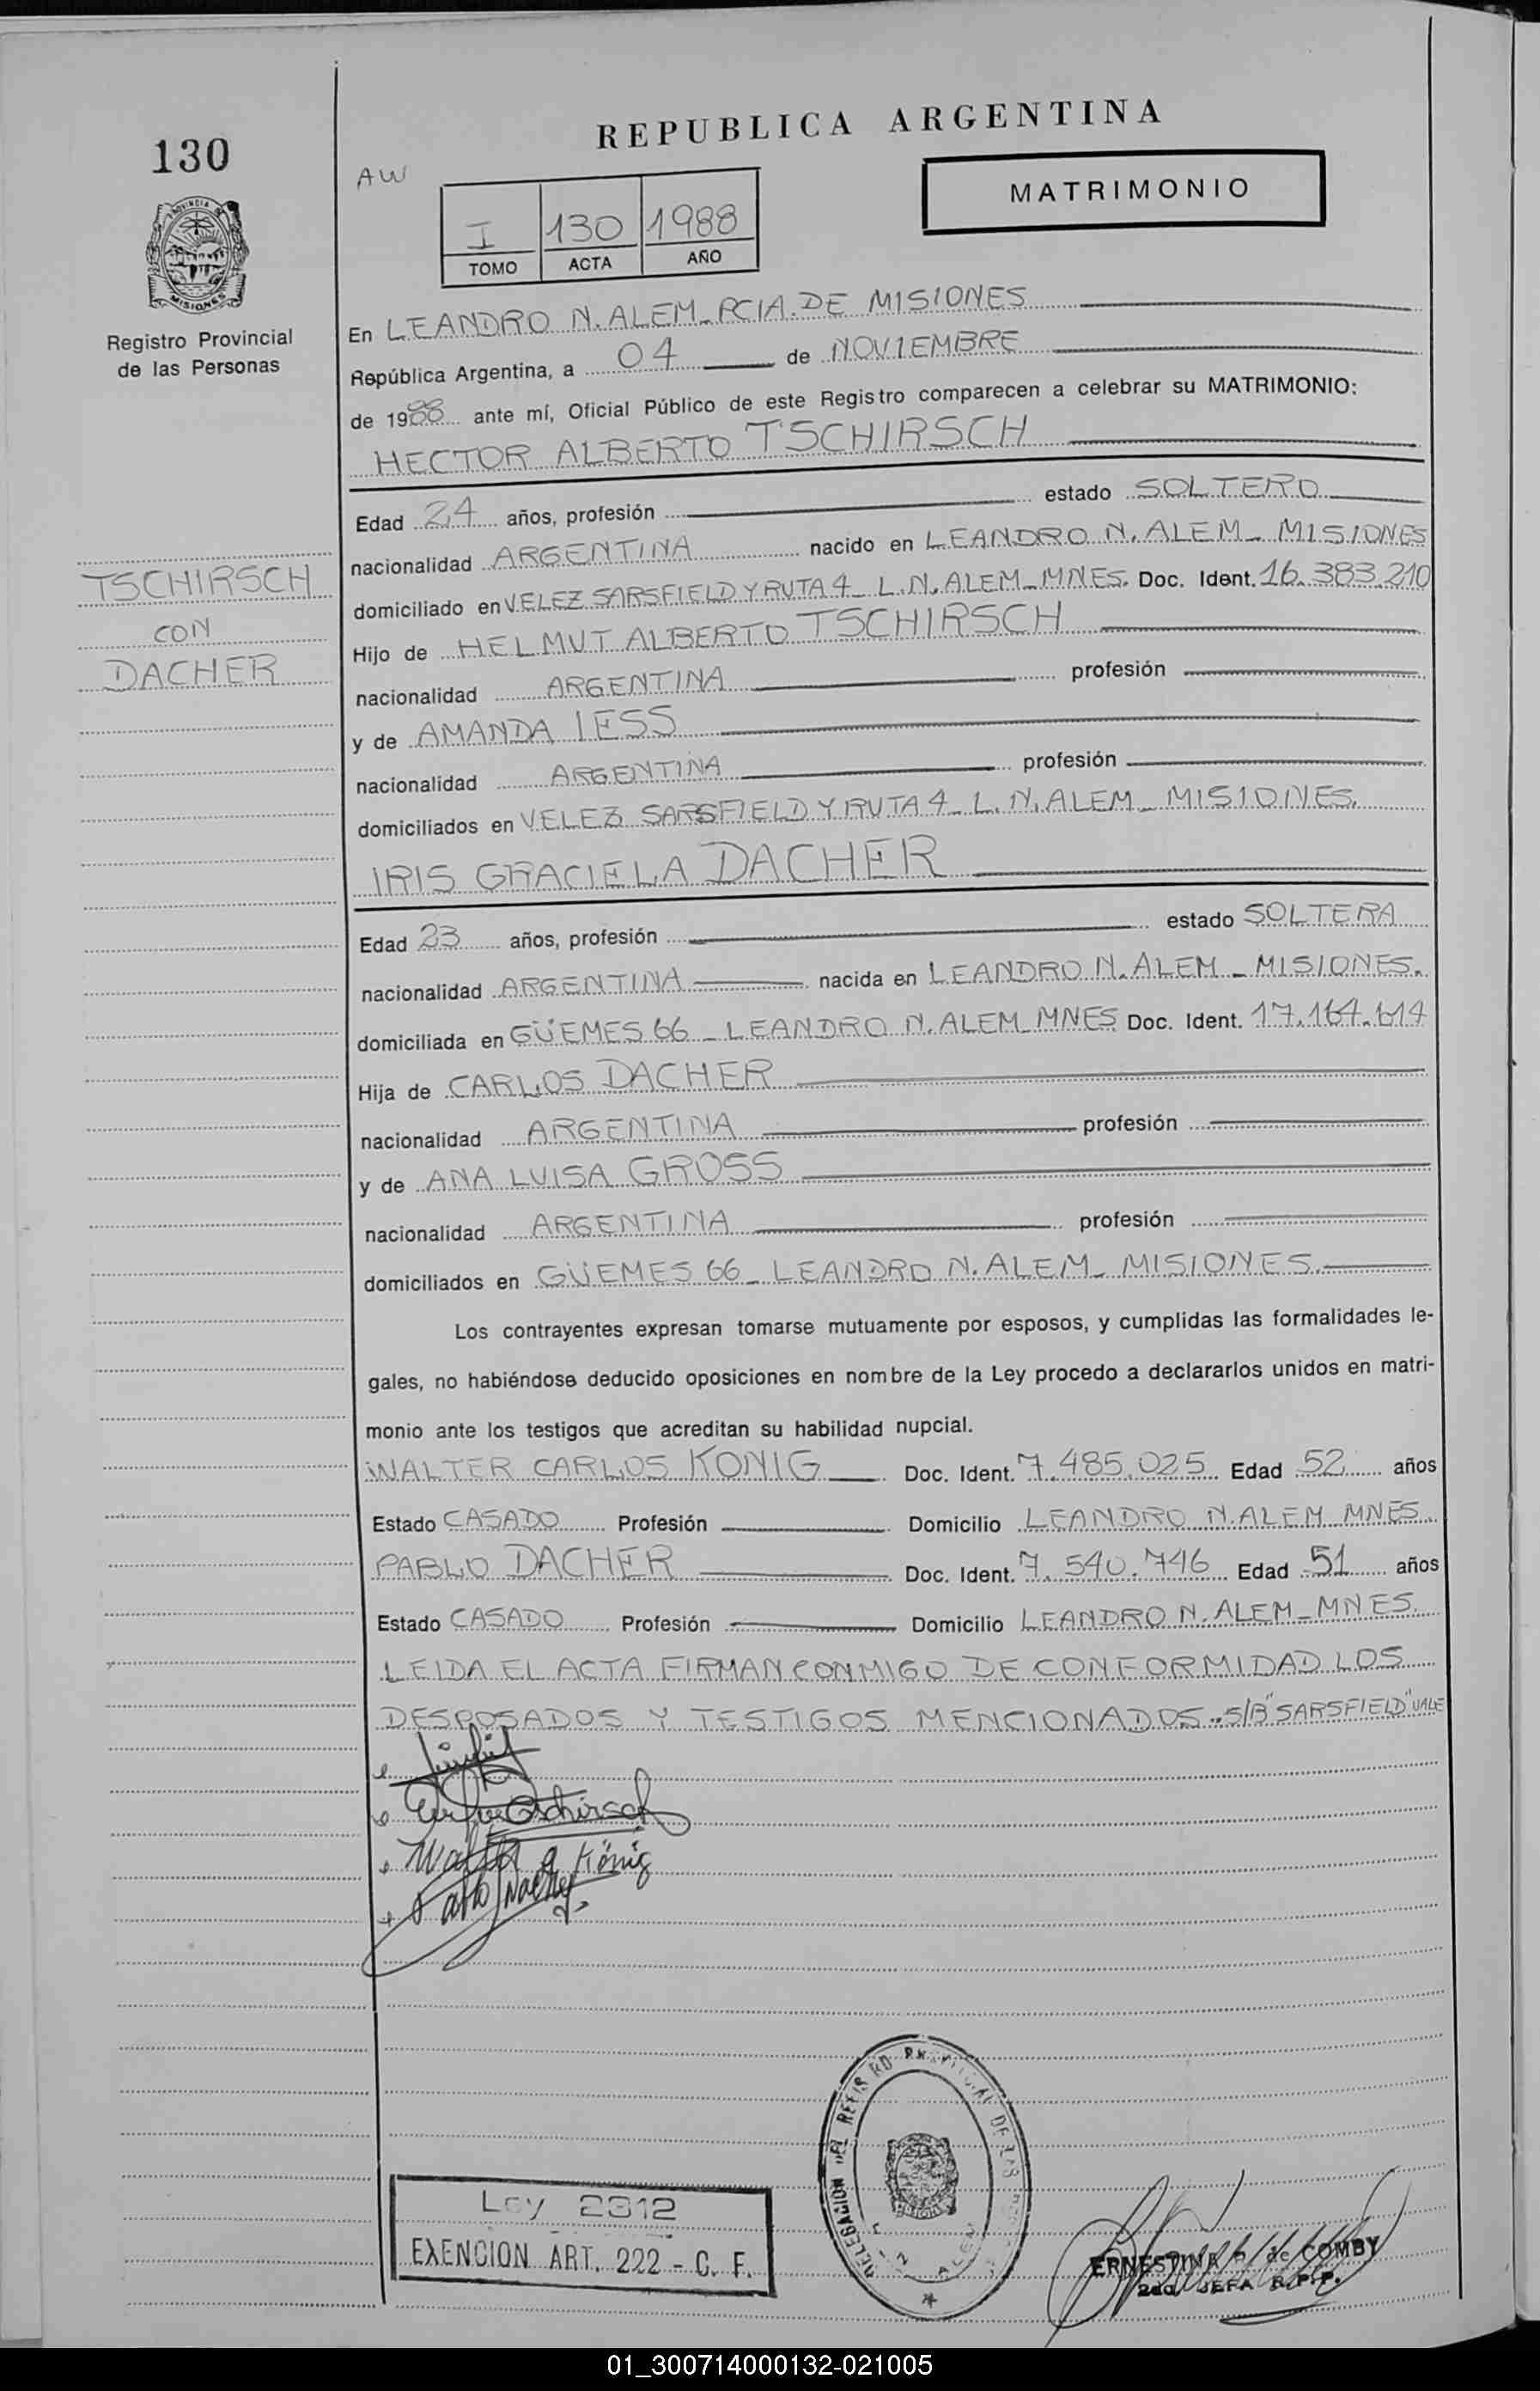 REPUBLICA ARGENTINA
130
AW
MATRIMONIO
I 130 1988
TOMO ACTA AÑO
PROVINCIA DE
MISIONES
Registro Provincial
de las Personas
En LEANDRO N. ALEM_PCIA. DE MISIONES
República Argentina, a 04 de NOVIEMBRE
de 1988 ante mí, Oficial Público de este Registro comparecen a celebrar su MATRIMONIO:
HECTOR ALBERTO TSCHIRSCH
Edad 24 años, profesión estado SOLTERO
nacionalidad ARGENTINA nacido en LEANDRO N. ALEM_ MISIONES
domiciliado en VELEZ SARSFIELD Y RUTA 4_ L.N. ALEM_MNES. Doc. Ident. 16.383.210
Hijo de HELMUT ALBERTO TSCHIRSCH
nacionalidad ARGENTINA profesión
y de AMANDA IESS
nacionalidad ARGENTINA profesión
domiciliados en VELEZ SARSFIELD Y RUTA 4_ L. N. ALEM_ MISIONES.
TSCHIRSCH
CON
DACHER
IRIS GRACIELA DACHER
Edad 23 años, profesión estado SOLTERA
nacionalidad ARGENTINA nacida en LEANDRO N. ALEM _ MISIONES.
domiciliada en GÜEMES 66 _ LEANDRO N. ALEM_MNES Doc. Ident. 17.164.614
Hija de CARLOS DACHER
nacionalidad ARGENTINA profesión
y de ANA LUISA GROSS
nacionalidad ARGENTINA profesión
domiciliados en GÜEMES 66_ LEANDRO N. ALEM_ MISIONES.
Los contrayentes expresan tomarse mutuamente por esposos, y cumplidas las formalidades le-
gales, no habiéndose deducido oposiciones en nombre de la Ley procedo a declararlos unidos en matri-
monio ante los testigos que acreditan su habilidad nupcial.
WALTER CARLOS KONIG Doc. Ident. 7.485.025 Edad 52 años
Estado CASADO Profesión Domicilio LEANDRO N. ALEM MNES.
PABLO DACHER Doc. Ident. 7.540.746 Edad 51 años
Estado CASADO Profesión Domicilio LEANDRO N. ALEM_MNES.
LEIDA EL ACTA FIRMAN CONMIGO DE CONFORMIDAD LOS
DESPOSADOS Y TESTIGOS MENCIONADOS.-S/B "SARSFIELD" VALE
Tschirsch
Walter König
Pablo Dacher
DELEGACION DEL REGISTRO PROVINCIAL DE LAS
ALEM
Ley 2312
EXENCION ART. 222 - C. F.
ERNESTINA de COMBY
2da. JEFA R.P.P.
01_300714000132-021005